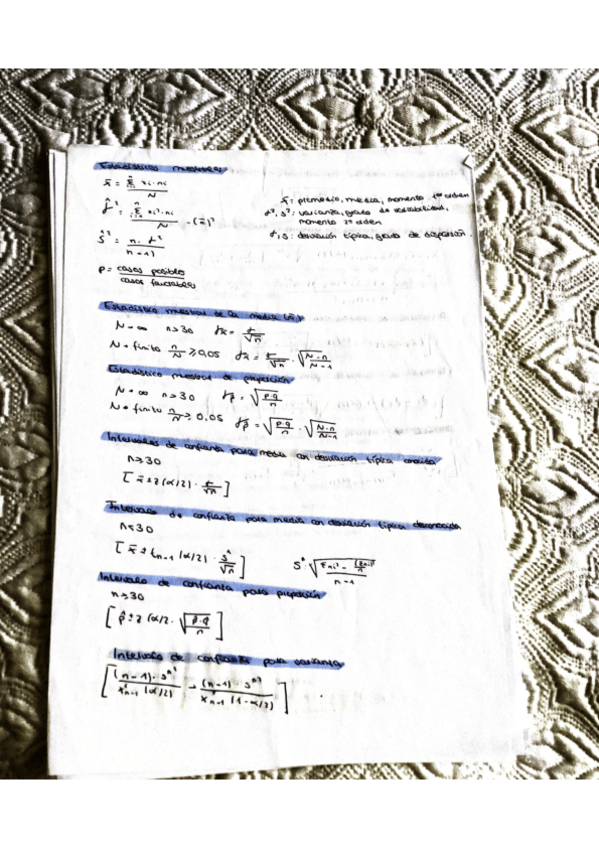 Estadísticos muestrales
x̄ = Σ xi·ni / N
x̄: promedio, media, momento 1er orden
σ̂² = Σ xi²·ni / N - (x̄)²
σ², s²: varianza, grado de variabilidad,
momento 2º orden
ŝ² = n·σ² / n-1
σ, s: desviación típica, grado de dispersión.
P = casos posibles / casos favorables
Estadístico muestral de la media (x̄)
N = ∞ n>30 σx̄ = σ/√n
N = finito n/N ≥ 0,05 σx̄ = σ/√n · √(N-n / N-1)
Estadístico muestral de proporción
N = ∞ n>30 σp̂ = √(p·q / n)
N = finito n/N ≥ 0,05 σp̂ = √(p·q / n) · √(N-n / N-1)
Intervalos de confianza para media con desviación típica conocida
n≥30
[x̄ ± z(α/2) · σ/√n]
Intervalo de confianza para media con desviación típica desconocida
n<30
[x̄ ± tn-1 (α/2) · ŝ/√n] ŝ = √(Σxi² - (Σxi)²/n / n-1)
Intervalo de confianza para proporción
n≥30
[p̂ ± z(α/2 · √(p̂·q / n)]
Intervalo de confianza para varianza
[(n-1)·ŝ² / x²n-1 (α/2) - (n-1)·ŝ² / x²n-1 (1-α/2)]